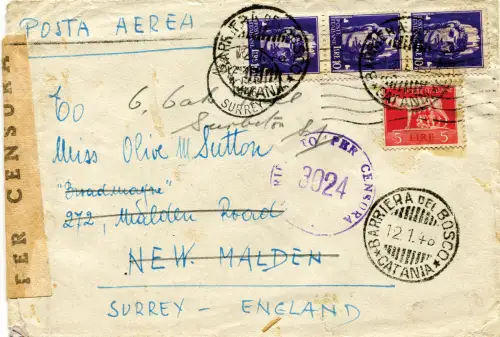 POSTA AEREA
PER CENSURA
BARRIERA DEL BOSCO
CATANIA
LIRE 10
5 LIRE 5
To
6, Oak
Surbiton
Miss Olive M Sutton
"Broadmayne"
272, Malden Road
NEW MALDEN
SURREY - ENGLAND
SURREY
PER CENSURA
3024
BARRIERA DEL BOSCO
12.1.46
CATANIA